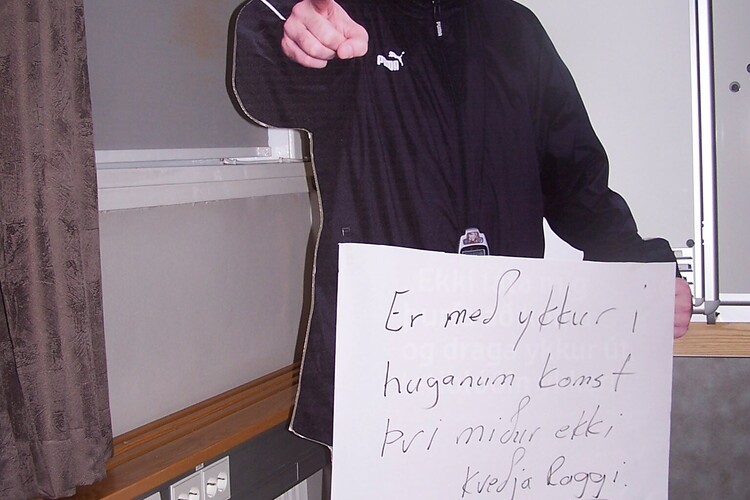 PUMA
Er með ykkur i
huganum komst
Þvi miður ekki
kveðja Raggi.